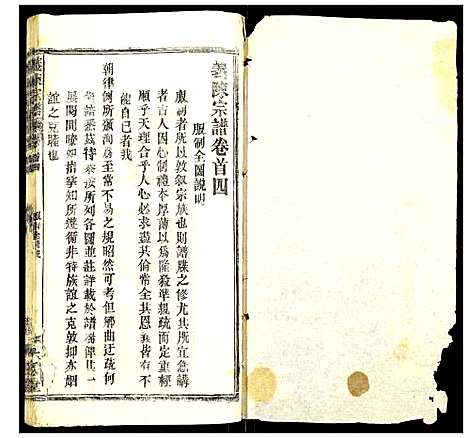 義陳宗譜卷首四
服制全圖說明
服制者所以敦叙宗族也則譜牒之修尤其所宜急講
者古人因心制禮本厚薄以爲隆殺準親疏而定重輕
順乎天理合乎人心必求盡其倫常全其恩義皆有不
能自已者我
朝律例所頒尚至當不易之規昭然可考但鄉曲迂疏何
能譜悉茲特表按所列各圖並註詳載於譜俾其一
展閱間瞭如指掌所遵循非特族誼之克敦抑亦姻
誼之克聯也